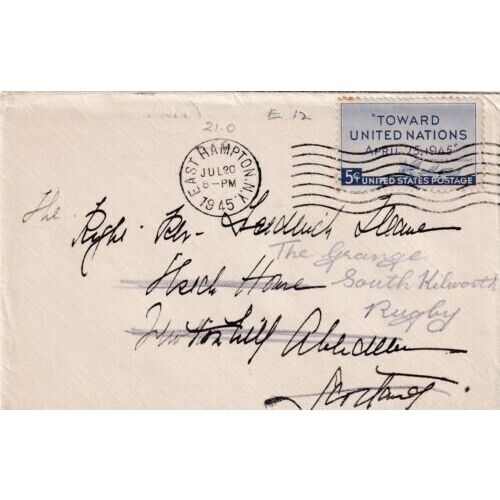 E 12
21.0
EAST HAMPTON, N.Y.
JUL 20
6-PM
1945
"TOWARD
UNITED NATIONS
APRIL 25, 1945"
5¢ UNITED STATES POSTAGE
The
Right Rev. Frederick
The Grange
House South Kilworth
Rugby
Aberdeen
Scotland